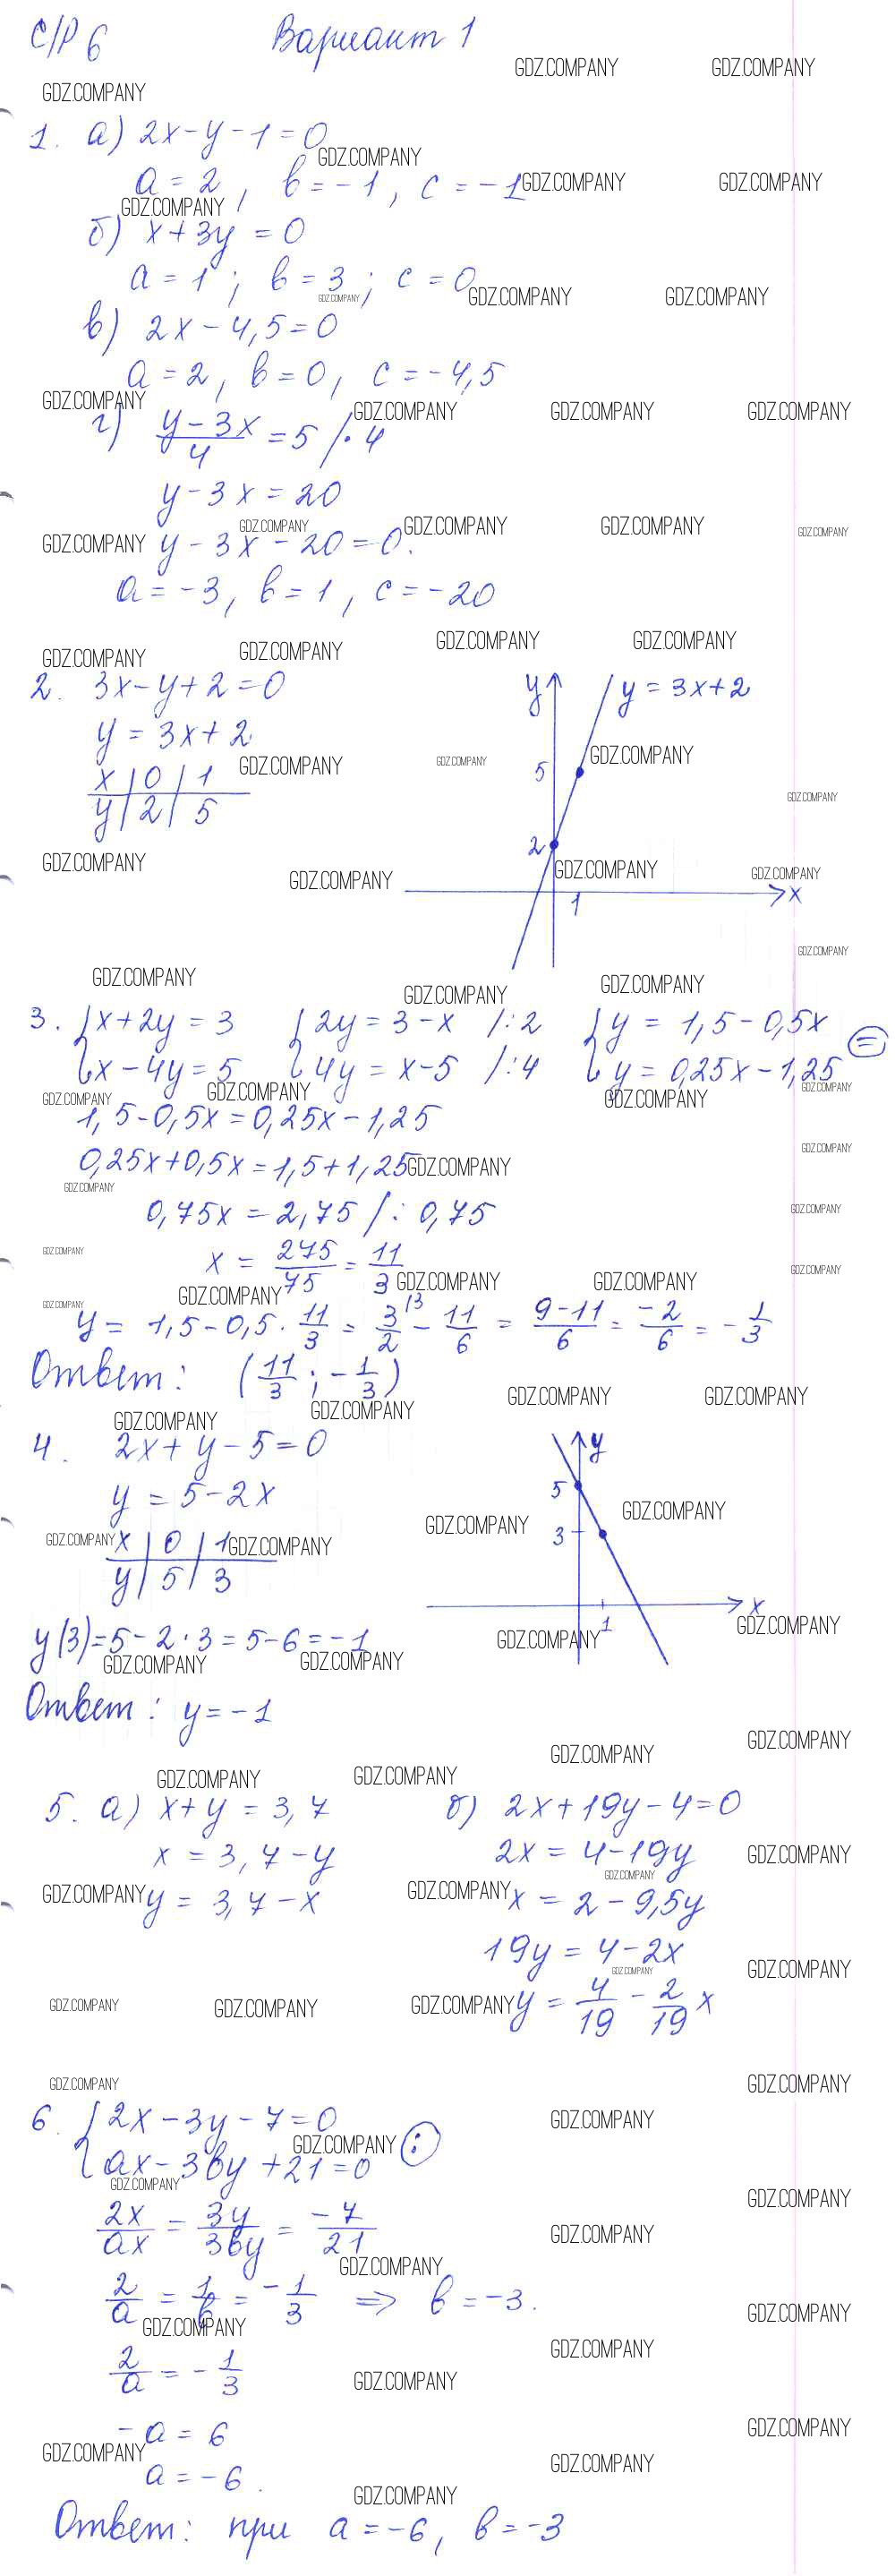 С/Р 6 Вариант 1
1. а) 2x - y - 1 = 0
a = 2, b = -1, c = -1
б) x + 3y = 0
a = 1; b = 3; c = 0
в) 2x - 4,5 = 0
a = 2, b = 0, c = -4,5
г) (y - 3x)/4 = 5 /·4
y - 3x = 20
y - 3x - 20 = 0.
a = -3, b = 1, c = -20
2. 3x - y + 2 = 0
y = 3x + 2
x | 0 | 1
y | 2 | 5
y
y = 3x + 2
5
2
1
x
3. { x + 2y = 3 { 2y = 3 - x /:2 { y = 1,5 - 0,5x
{ x - 4y = 5 { 4y = x - 5 /:4 { y = 0,25x - 1,25 (=)
1,5 - 0,5x = 0,25x - 1,25
0,25x + 0,5x = 1,5 + 1,25
0,75x = 2,75 /: 0,75
x = 275/75 = 11/3
y = 1,5 - 0,5 · 11/3 = 3/2 /3 - 11/6 = (9-11)/6 = -2/6 = -1/3
Ответ: (11/3; -1/3)
4. 2x + y - 5 = 0
y = 5 - 2x
x | 0 | 1
y | 5 | 3
y
5
3
1
x
y(3) = 5 - 2·3 = 5 - 6 = -1
Ответ: y = -1
5. а) x + y = 3,7
x = 3,7 - y
y = 3,7 - x
б) 2x + 19y - 4 = 0
2x = 4 - 19y
x = 2 - 9,5y
19y = 4 - 2x
y = 4/19 - 2/19 x
6. { 2x - 3y - 7 = 0
{ ax - 3by + 21 = 0 (:)
2x/ax = 3y/3by = -7/21
2/a = 1/b = -1/3 => b = -3.
2/a = -1/3
-a = 6
a = -6.
Ответ: при a = -6, b = -3
GDZ.COMPANY